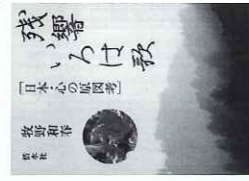 残響
いろは歌
［日本・心の原図考］
牧野和春
牧水社